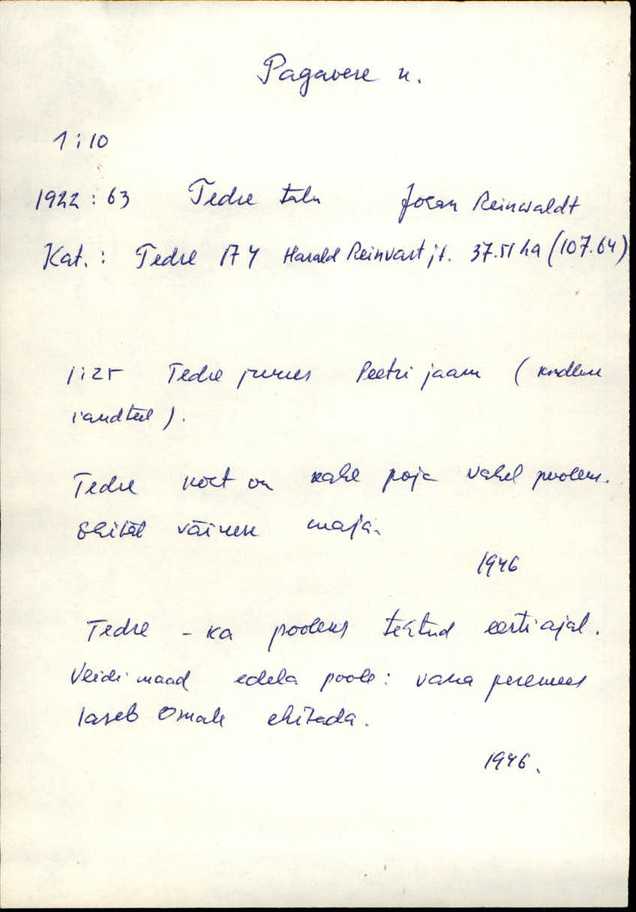 Pagavere k.
1:10
1922: 63 Tedre talu Joean Reinwaldt
Kat.: Tedre A74 Harald Reinvart jt. 37.51 ha (107.64)
1:25 Tedre juures Peetri jaam (
raudteel).
Tedre koet on kahe poja vahel pooleks.
Ehitat väikene maja.
1946
Tedre - ka pooleks tehtud eesti ajal.
Veidi maad edela poole: vana peremees
laseb omale ehitada.
1946.